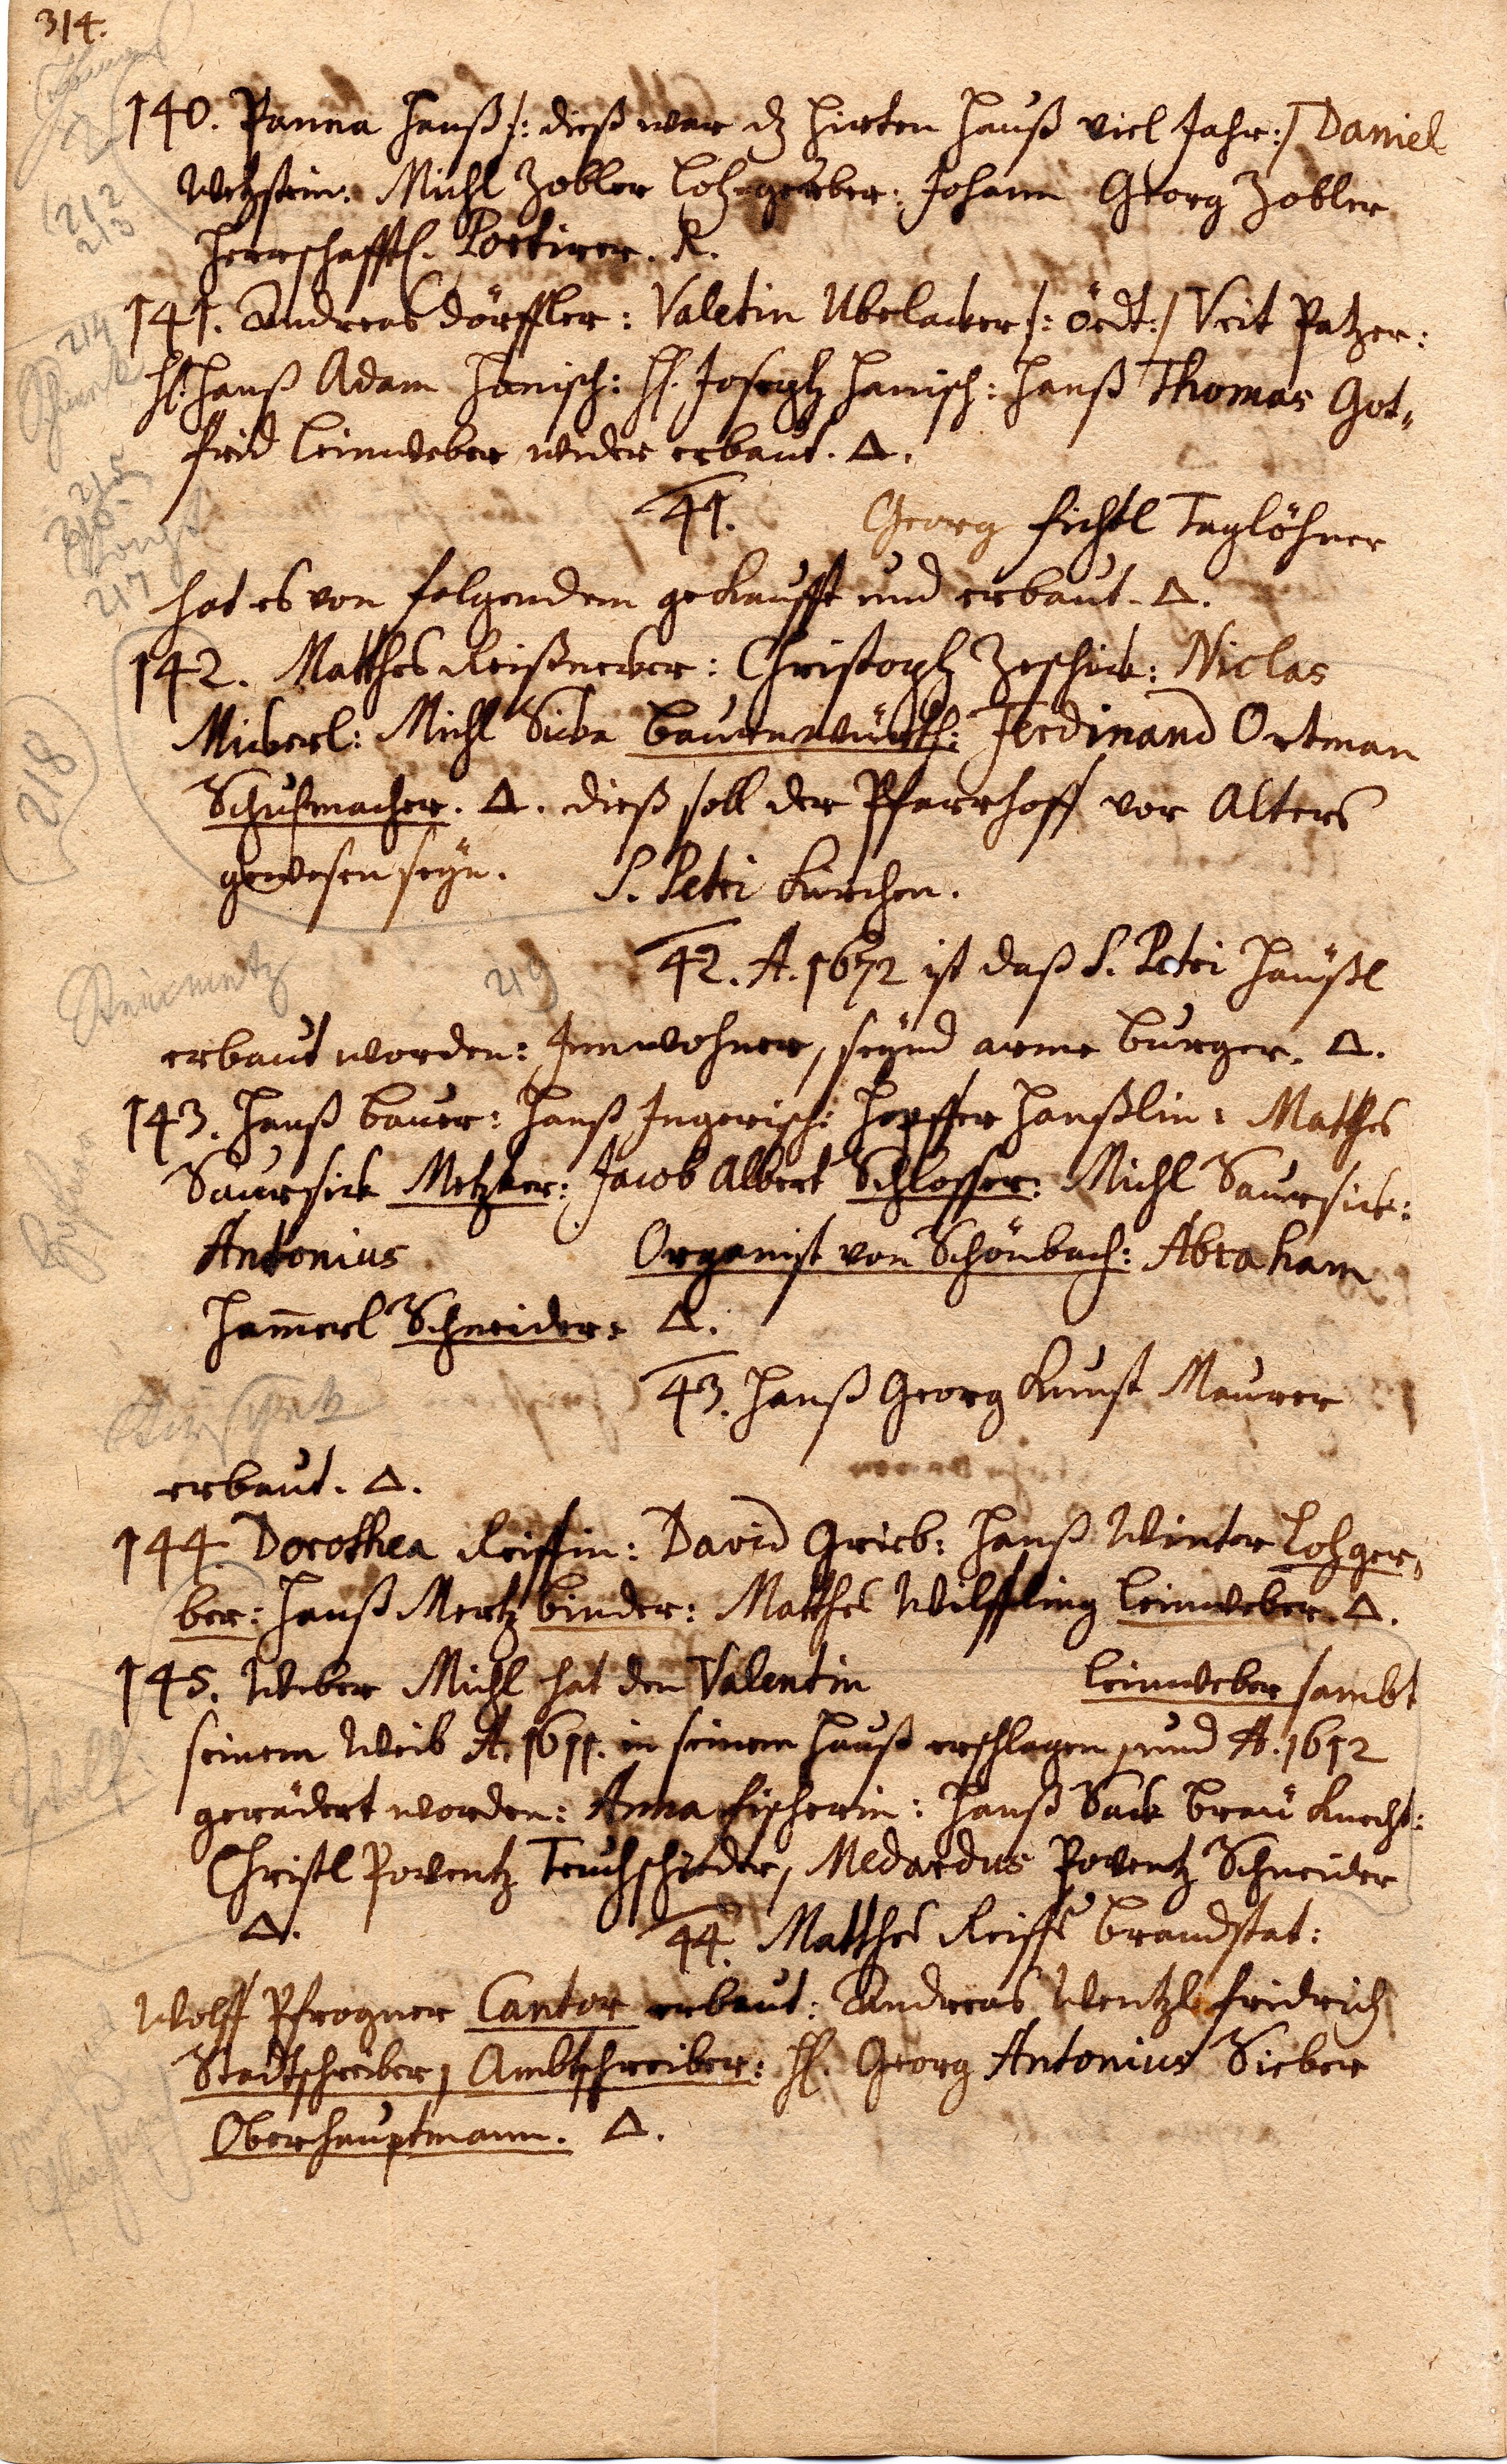 314.
140. Panna Hanß /: dieß war dz Hirten Hauß viel Jahr :/ Daniel
Wetzstein: Michl Zobler Lohgerber: Johann Georg Zobler
Herrschafftl. Portirer.
141. Andreas Dörffler: Valetin Ubelacker /: öedt :/ Veit Patzer:
H. Hanß Adam Hanisch: H. Joseph Hanisch: Hanß Thomas Got„
frid Leinweber wider erbaut. Δ.
41. Georg Fichtl Taglöhner
hat es von folgendem gekaufft und erbaut. Δ.
142. Matthes Reißnecker: Christoph Zeschick: Niclas
Mickerl: Michl Sicka Baurnwürth: Ferdinand Ortman
Schuhmacher. Δ. dieß soll der Pfarrhoff vor Alters
gewesen seyn. S. Petri Kirchen.
42. A. 1672 ist daß S. Petri Häußl
erbaut worden: Innwohner, seynd arme Burger. Δ.
143. Hanß Bauer: Hanß Ingerisch: Hanßlin: Matthes
Saursick Metzker: Jacob Albert Schlosser: Michl Saursick:
Antonius Organist von Schönbach: Abraham
Ham̄erl Schneider: Δ.
43. Hanß Georg Kunst Maurer
erbaut. Δ.
144. Dorothea Reissin: David Grieb: Hanß Winter Lohger„
ber: Hanß Mertz Binder: Matthes Wilffling Leinweber. Δ.
145. Weber Michl hat den Valentin Leinweber sambt
seinem Weib A. 1611. in seinem Hauß erschlagen, und A. 1612
gerädert worden: Anna Fischerin: Hanß Sack Breü Knecht:
Christl Poventz Medardus Poventz Schneider
Δ. 44. Matthes Reiss Brandstat:
Wolff Pfrogner Cantor erbaut: Andreas Wentzl Fridrich
Stadtschreiber, Ambtschreiber: H. Georg Antonius Sieber
Oberhauptmann. Δ.
212
213
214
215
216
217
218
219